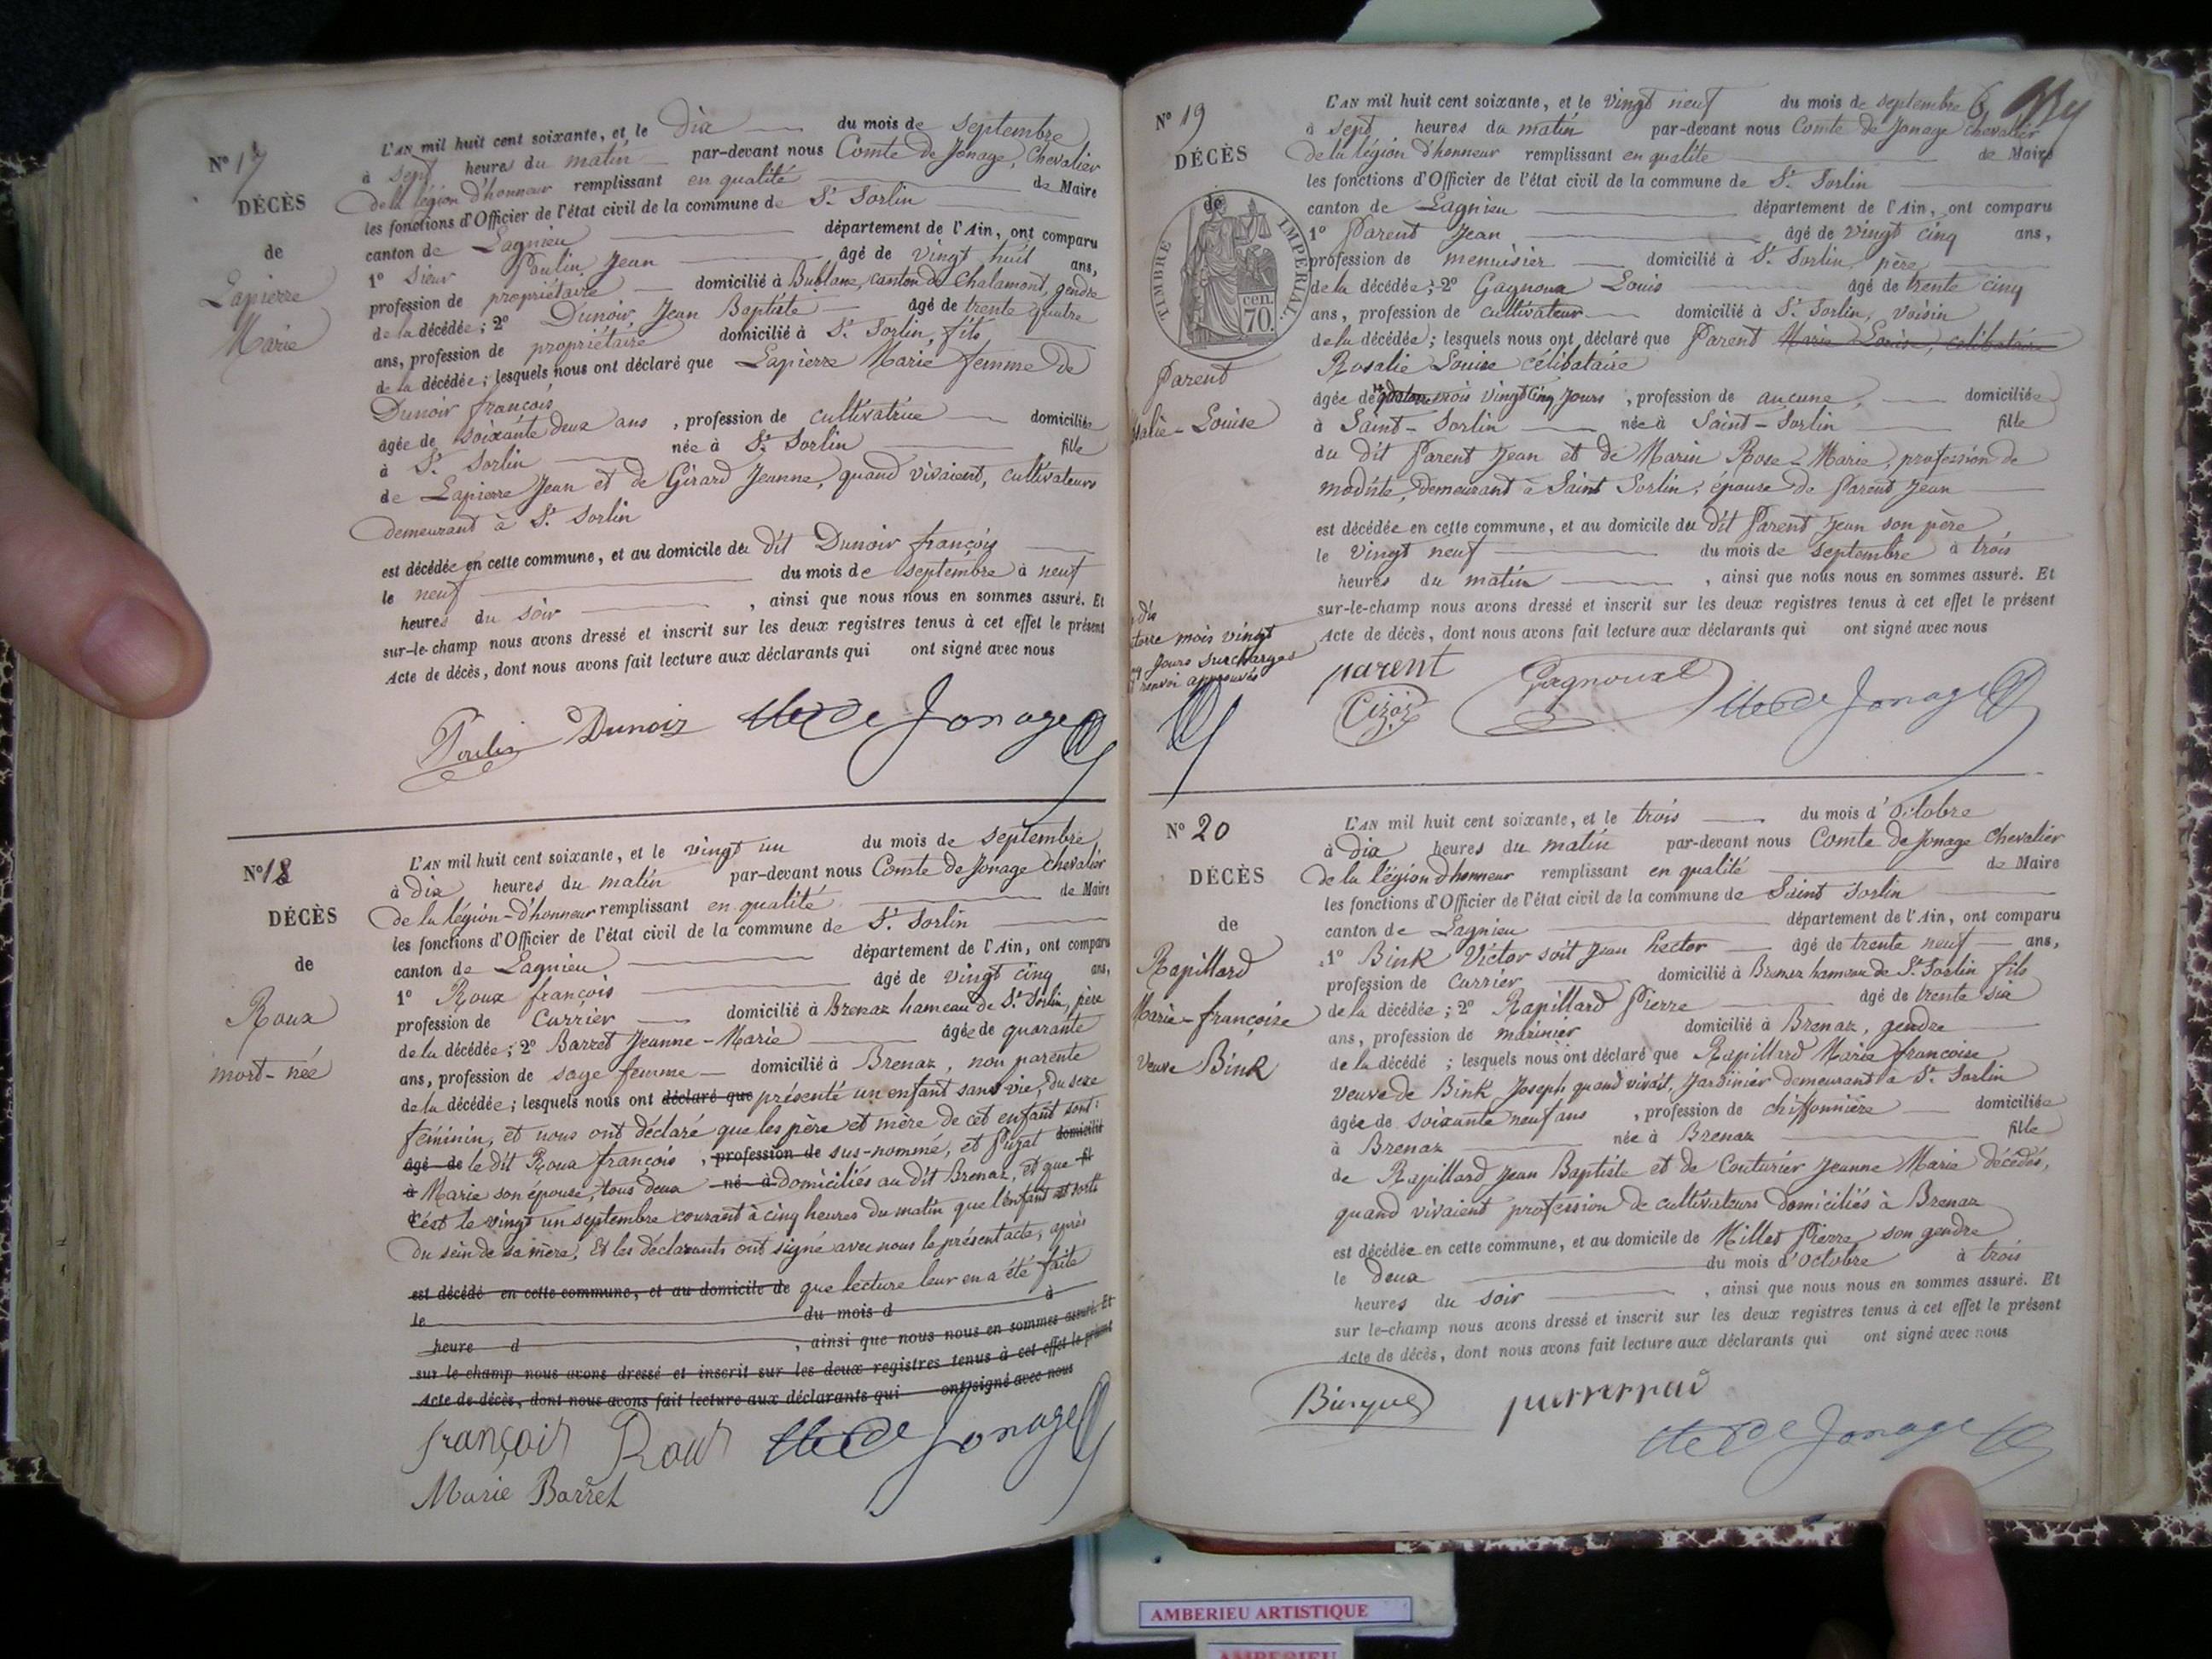 N° 17
DÉCÈS
de
Lapierre
Marie
L'AN mil huit cent soixante, et le dix du mois de septembre
à sept heures du matin par-devant nous Comte de Jonage, Chevalier
de la légion d'honneur remplissant en qualité de Maire
les fonctions d'Officier de l'état civil de la commune de St Sorlin
canton de Lagnieu département de l'Ain, ont comparu
1° Sieur Poulin Jean âgé de vingt huit ans,
profession de propriétaire domicilié à Bublane, canton de Chalamont, gendre
de la décédée; 2° Dunoir Jean Baptiste âgé de trente quatre
ans, profession de propriétaire domicilié à St Sorlin, fils
de la décédée; lesquels nous ont déclaré que Lapierre Marie femme de
Dunoir françois
âgée de soixante deux ans, profession de cultivatrice domiciliée
à St Sorlin née à St Sorlin fille
de Lapierre Jean et de Girard Jeanne, quand vivaient, cultivateurs
demeurant à St Sorlin
est décédée en cette commune, et au domicile du dit Dunoir françois
le neuf du mois de septembre à neuf
heures du soir, ainsi que nous nous en sommes assuré. Et
sur-le-champ nous avons dressé et inscrit sur les deux registres tenus à cet effet le présent
Acte de décès, dont nous avons fait lecture aux déclarants qui ont signé avec nous
Poulin Dunoir Cte de Jonage
N° 18
DÉCÈS
de
Roux
mort-née
L'AN mil huit cent soixante, et le vingt un du mois de septembre
à dix heures du matin par-devant nous Comte de Jonage chevalier
de la légion-d'honneur remplissant en qualité de Maire
les fonctions d'Officier de l'état civil de la commune de St Sorlin
canton de Lagnieu département de l'Ain, ont comparu
1° Roux françois âgé de vingt cinq ans,
profession de Carrier domicilié à Brenaz hameau de St Sorlin, père
de la décédée; 2° Barret Jeanne-Marie âgée de quarante
ans, profession de sage femme domicilié à Brenaz, non parente
de la décédée; lesquels nous ont déclaré que présenté un enfant sans vie, du sexe
féminin, et nous ont déclaré que les père et mère de cet enfant sont:
âgé de le dit Roux françois, profession de sus-nommé, et Puzat domicilié
à Marie son épouse, tous deux né à domiciliés au dit Brenaz, et que fil
C'est le vingt un septembre courant à cinq heures du matin que l'enfant est sorti
du sein de sa mère, Et les déclarants ont signé avec nous le présent acte, après
est décédé en cette commune, et au domicile de que lecture leur en a été faite
le du mois d à
heure d, ainsi que nous nous en sommes assuré. Et
sur-le-champ nous avons dressé et inscrit sur les deux registres tenus à cet effet le présent
Acte de décès, dont nous avons fait lecture aux déclarants qui ont signé avec nous
françois Roux Cte de Jonage
Marie Barret
N° 19
DÉCÈS
de
TIMBRE IMPÉRIAL
70 cen.
Parent
salie-Louise
L'AN mil huit cent soixante, et le vingt neuf du mois de septembre
à sept heures du matin par-devant nous Comte de Jonage chevalier
de la légion d'honneur remplissant en qualité de Maire
les fonctions d'Officier de l'état civil de la commune de St Sorlin
canton de Lagnieu département de l'Ain, ont comparu
1° Parent Jean âgé de vingt cinq ans,
profession de menuisier domicilié à St Sorlin, père
de la décédée; 2° Gagnoux Louis âgé de trente cinq
ans, profession de cultivateur domicilié à St Sorlin, voisin
de la décédée; lesquels nous ont déclaré que Parent Marie Louise, célibataire
Rosalie Louise célibataire
âgée de quatorze mois vingt cinq jours, profession de aucune, domiciliée
à Saint-Sorlin née à Saint-Sorlin fille
du dit Parent Jean et de Marin Rose-Marie, profession de
modiste, demeurant à Saint Sorlin, épouse de Parent Jean
est décédée en cette commune, et au domicile du dit Parent Jean son père
le vingt neuf du mois de septembre à trois
heures du matin, ainsi que nous nous en sommes assuré. Et
sur-le-champ nous avons dressé et inscrit sur les deux registres tenus à cet effet le présent
Acte de décès, dont nous avons fait lecture aux déclarants qui ont signé avec nous
torze mois vingt
jours surchargés
renvoi approuvés
parent Gagnoux Cte de Jonage
N° 20
DÉCÈS
de
Rapillard
Marie-françoise
veuve Bink
L'AN mil huit cent soixante, et le trois du mois d'Octobre
à dix heures du matin par-devant nous Comte de Jonage Chevalier
de la légion d'honneur remplissant en qualité de Maire
les fonctions d'Officier de l'état civil de la commune de Saint Sorlin
canton de Lagnieu département de l'Ain, ont comparu
1° Bink Victor soit Jean hector âgé de trente neuf ans,
profession de Carrier domicilié à Brenaz hameau de St Sorlin fils
de la décédée; 2° Rapillard Pierre âgé de trente six
ans, profession de marinier domicilié à Brenaz, gendre
de la décédé; lesquels nous ont déclaré que Rapillard Marie françoise
veuve de Bink Joseph quand vivait, Jardinier demeurant à St Sorlin
âgée de soixante neuf ans, profession de chiffonnière domiciliée
à Brenaz née à Brenaz fille
de Rapillard Jean Baptiste et de Couturier Jeanne Marie décédés,
quand vivaient profession de cultivateurs domiciliés à Brenaz
est décédée en cette commune, et au domicile de Millet Pierre, son gendre
le deux du mois d'octobre à trois
heures du soir, ainsi que nous nous en sommes assuré. Et
sur-le-champ nous avons dressé et inscrit sur les deux registres tenus à cet effet le présent
Acte de décès, dont nous avons fait lecture aux déclarants qui ont signé avec nous
Cte de Jonage
AMBERIEU ARTISTIQUE
AMBERIEU